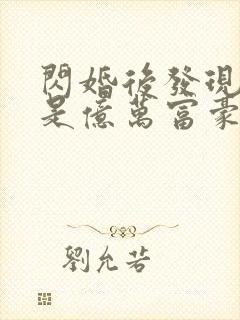 閃婚後發現
是億萬富豪
劉允若